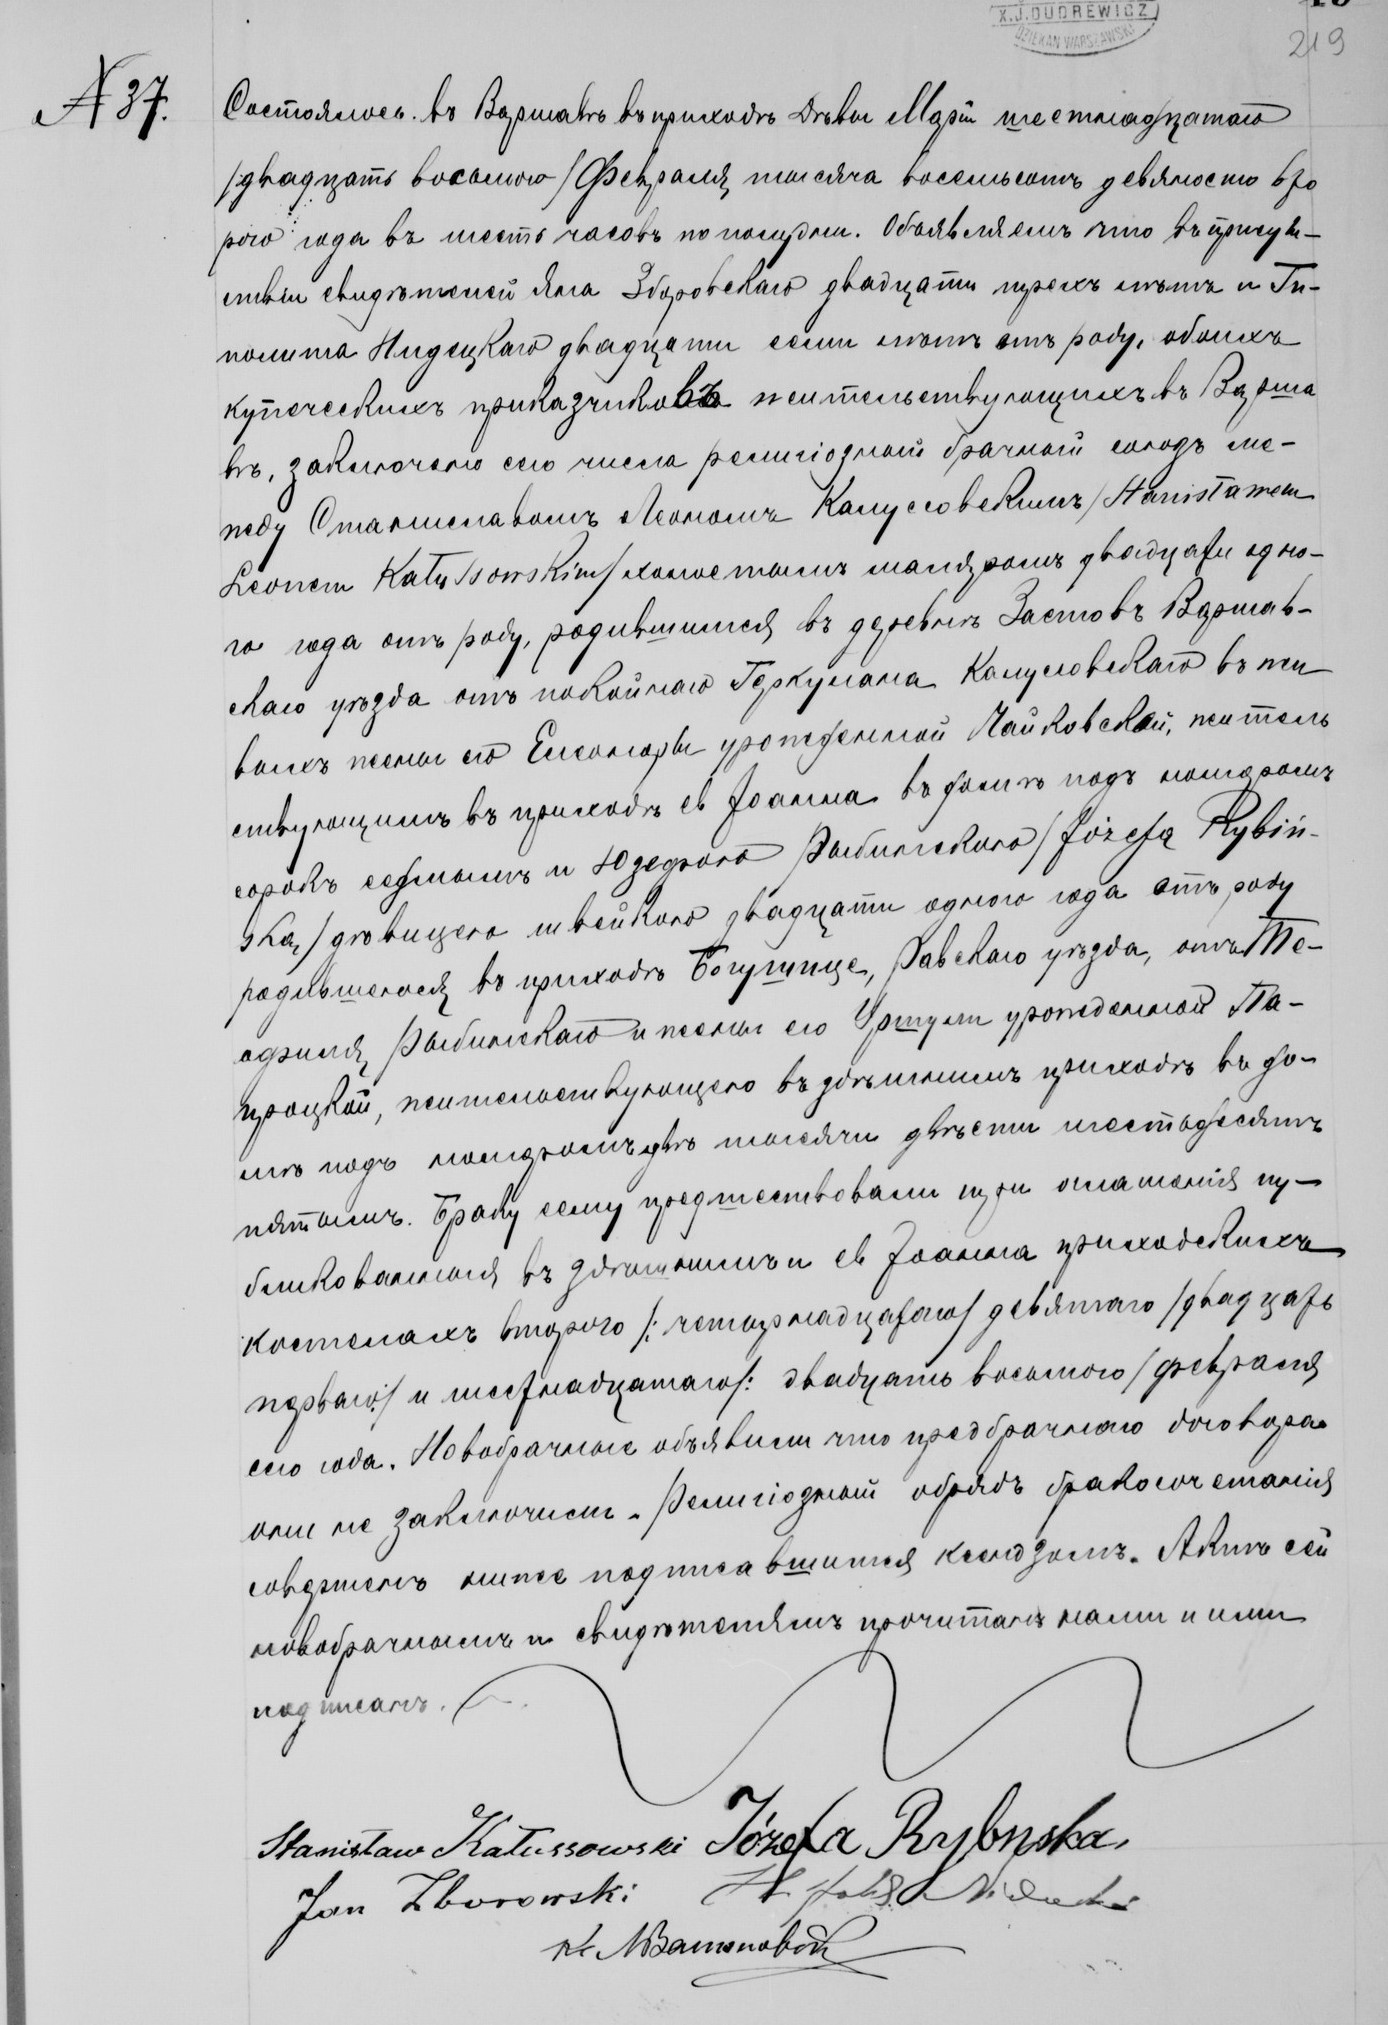 X.J.DUDREWICZ
DZIEKAN WARSZAWSKI
219
№ 37.
Состоялось въ Варшавѣ въ приходѣ Дѣвы Маріи шестнадцатаго
/двадцать восьмого/ Февраля тысяча восемьсотъ девяносто вто
рого года въ шесть часовъ по полудни. Объявляемъ что въ присут-
ствіи свидѣтелей Яна Зборовскаго двадцати трехъ лѣтъ и Ги-
полита Нидецкаго двадцати семи лѣтъ отъ роду, обоихъ
купеческихъ приказчиковъ жительствующихъ въ Варша
вѣ, заключенъ сего числа религіозный брачный союзъ ме-
жду Станиславомъ Леономъ Калуссовскимъ /Stanisławem
Leonem Kałussowskim/ холостымъ маляромъ двадцати одно-
го года отъ роду, родившимся въ деревнѣ Застовъ Варшав-
скаго уѣзда отъ покойнаго Геркулана Калусовскаго въ жи
выхъ жены его Елеоноры урожденной Чайковской, житель
ствующимъ въ приходѣ св Іоанна въ домѣ подъ номеромъ
сорокъ седьмымъ и Юзефою Рыбинскою /Józefą Rybiń-
ską/ дѣвицею швейкою двадцати одного года отъ роду
родившеюся въ приходѣ Богушице, Равскаго уѣзда, отъ Те-
офиля Рыбинскаго и жены его Уршули урожденной Па-
процкой, жительствующею въ здѣшнимъ приходѣ въ до-
мѣ подъ номеромъ двѣ тысячи двѣсти шестьдесятъ
пятымъ. Браку сему предшествовали три оглашенія пу-
бликованныя въ здѣшнимъ и св Іоанна приходскихъ
костелахъ второго /: четырнадцатаго/ девятаго /двадцать
перваго:/ и шестнадцатаго/: двадцать восьмого/ февраля
сего года. Новобрачные объявили что предбрачнаго договора
они не заключили. Религіозный обрядъ бракосочетанія
совершенъ ниже подписавшимся ксендзомъ. Актъ сей
новобрачнымъ и свидѣтелямъ прочитанъ нами и ими
подписанъ.
Stanisław Kałussowski Józefa Rybinska
Jan Zborowski